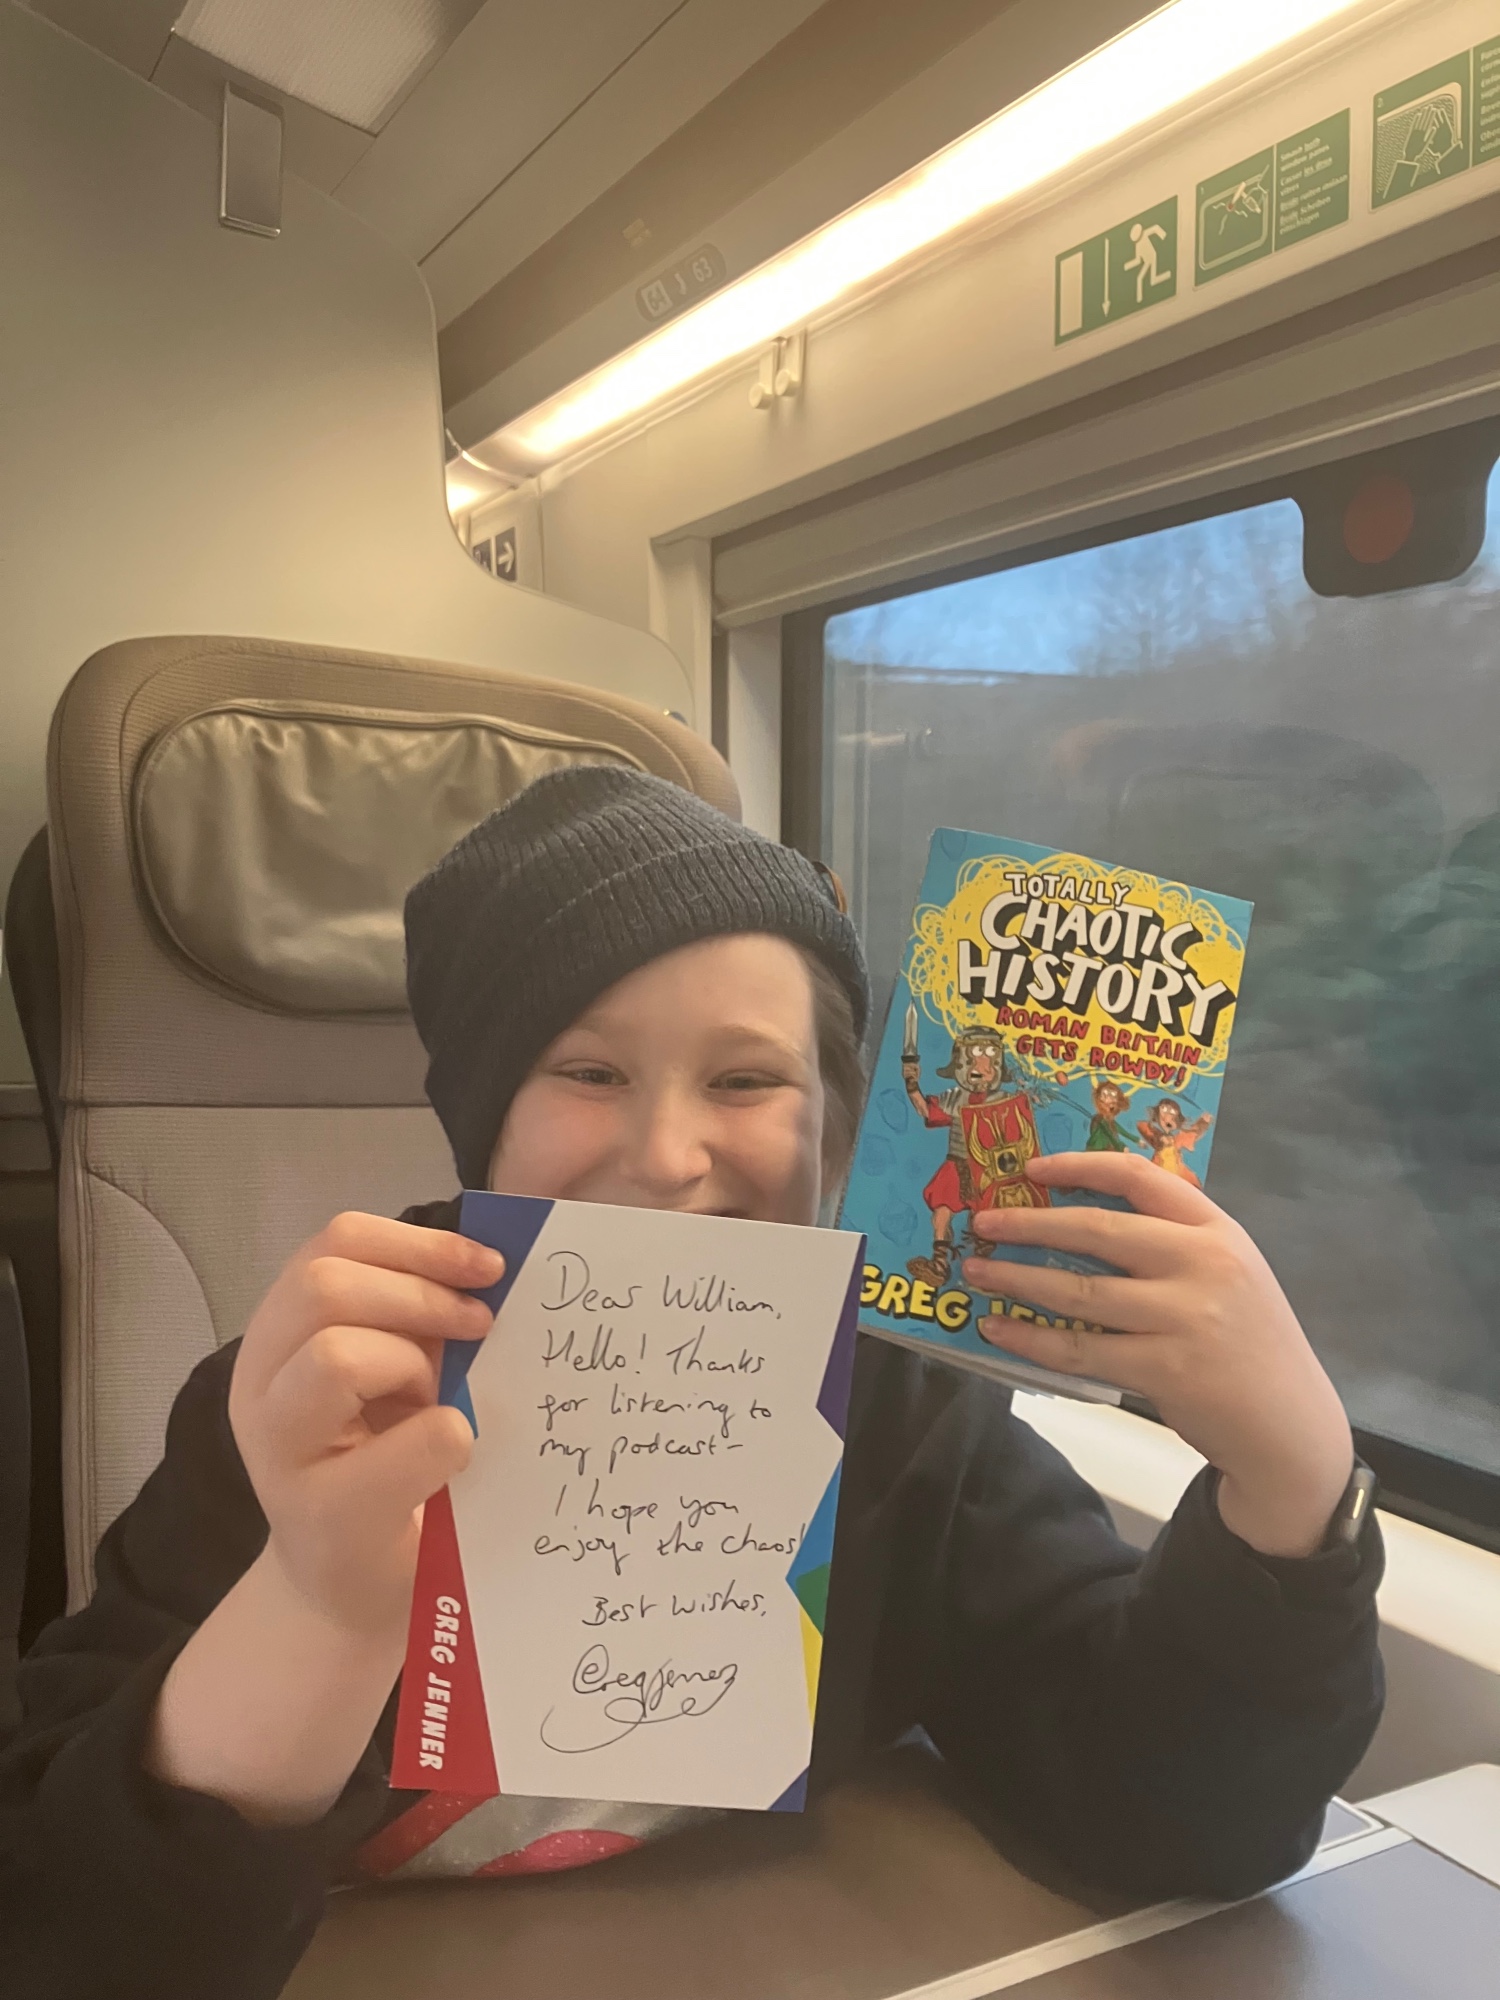 63
TOTALLY
CHAOTIC
HISTORY
ROMAN BRITAIN
GETS ROWDY!
GREG
Dear William,
Hello! Thanks
for listening to
my podcast -
I hope you
enjoy the chaos!
Best wishes,
GREG JENNER